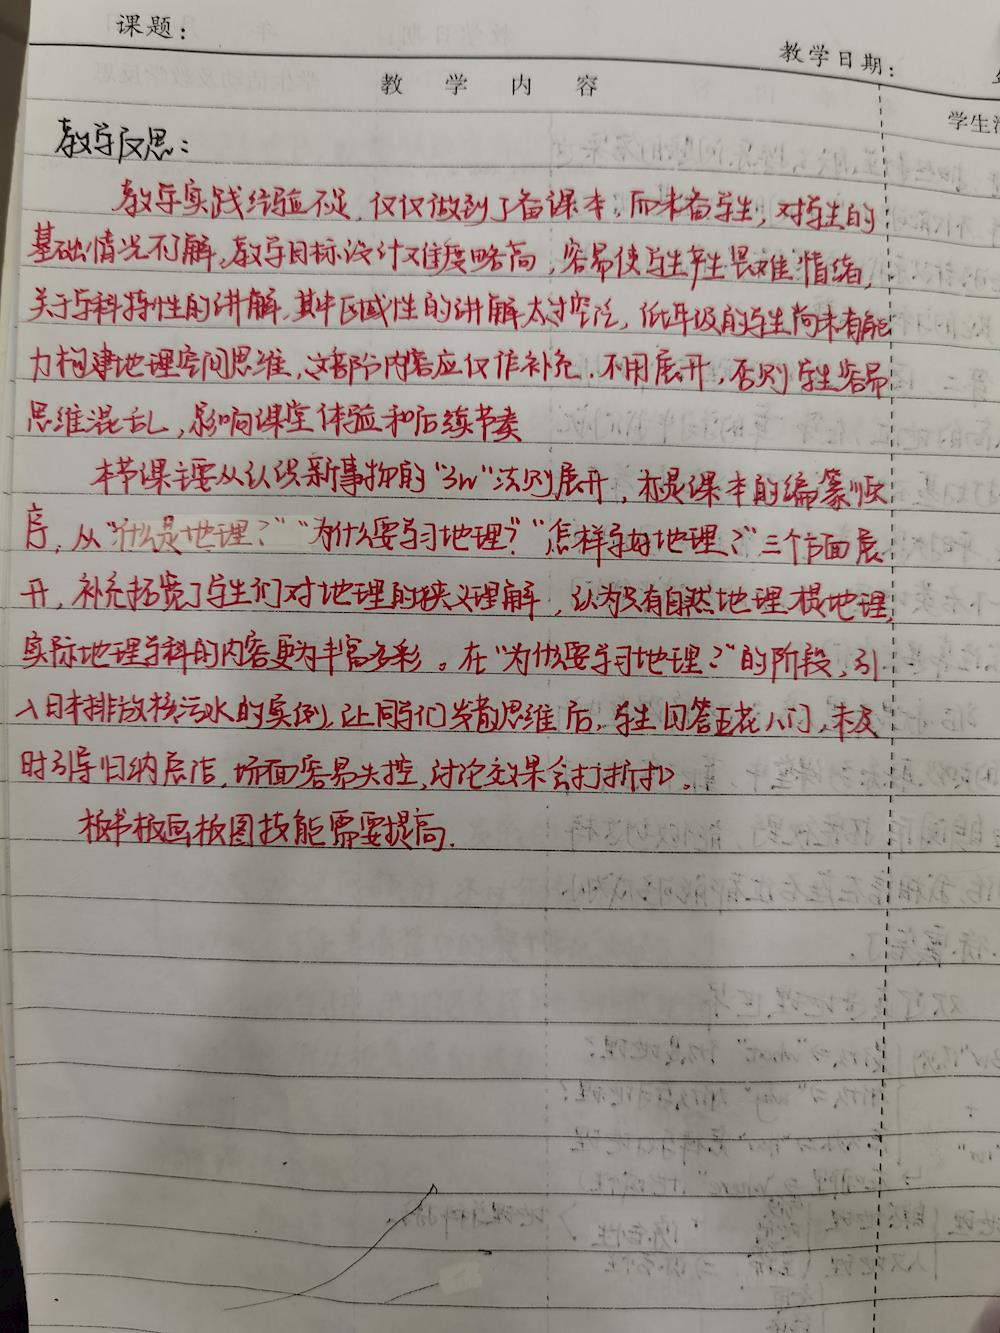 课题：
教学日期：
教 学 内 容
学生活
教学反思：
教学实践经验不足，仅仅做到了备课本，而未备学生，对学生的
基础情况不了解，教学目标设计难度略高，容易使学生产生畏难情绪，
关于学科特性的讲解，其中区域性的讲解太过空泛，低年级的学生尚未有能
力构建地理空间思维，这部分内容应仅作补充，不用展开，否则学生容易
思维混乱，影响课堂体验和后续节奏
本节课主要从认识新事物的"3w"法则展开，也是课本的编纂顺
序，从"什么是地理？""为什么要学习地理？""怎样学好地理？"三个方面展
开，补充拓宽了学生们对地理的狭义理解，认为只有自然地理才是地理，
实际地理学科的内容更为丰富多彩。在"为什么要学习地理？"的阶段，引
入日本排放核污水的实例，让同学们发散思维后，学生回答五花八门，未及
时引导归纳总结，场面容易失控，讨论效果会打折扣。
板书板画板图技能需要提高.